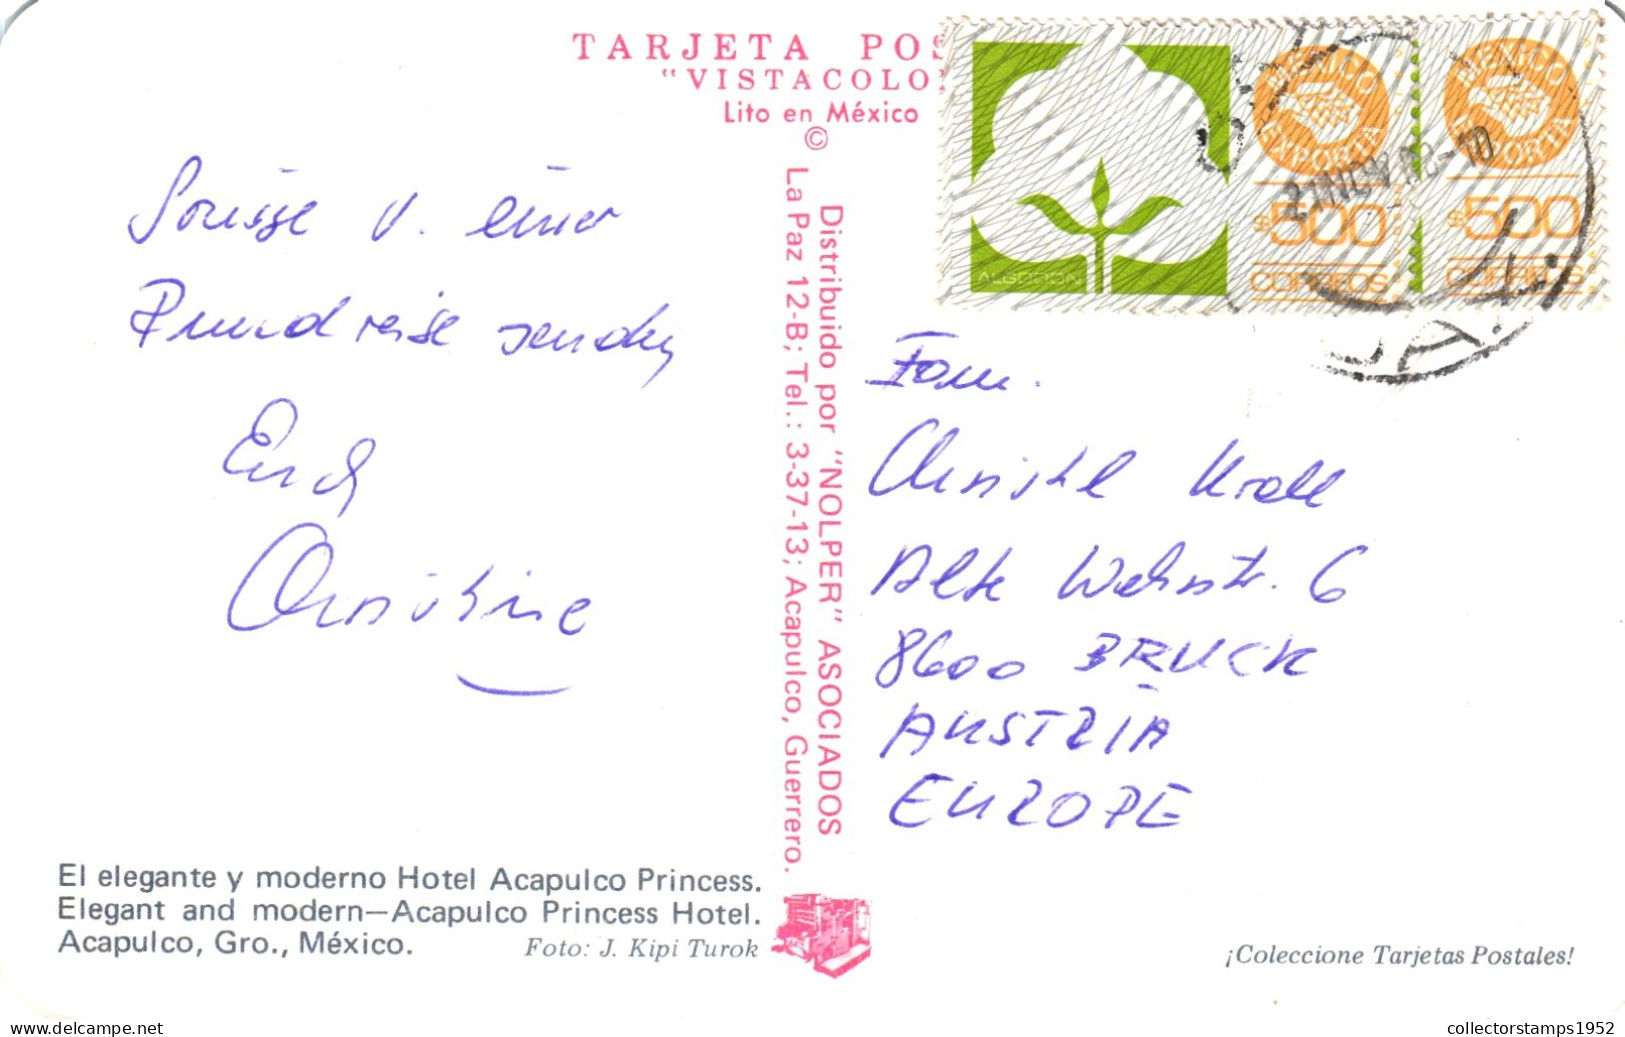 TARJETA POS
"VISTACOLO
Lito en México
©
Distribuido por "NOLPER" ASOCIADOS
La Paz 12-B; Tel.: 3-37-13; Acapulco, Guerrero.
v. einer
Rundreise senden
Euch
Christine
ALGODON
MEXICO
EXPORTA
$500
CORREOS
MEXICO
EXPORTA
$500
CORREOS
Fam.
Christl Kroll
Alte Wehrstr. 6
8600 BRUCK
AUSTRIA
EUROPE
El elegante y moderno Hotel Acapulco Princess.
Elegant and modern—Acapulco Princess Hotel.
Acapulco, Gro., México.
Foto: J. Kipi Turok
¡Coleccione Tarjetas Postales!
www.delcampe.net
collectorstamps1952